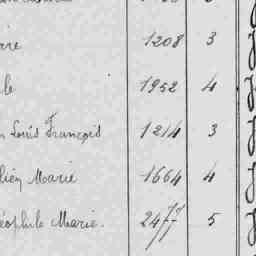 ire 1208 3
le 1952 4
n Louis François 1214 3
lien Marie 1664 4
éophile Marie. 2477 5